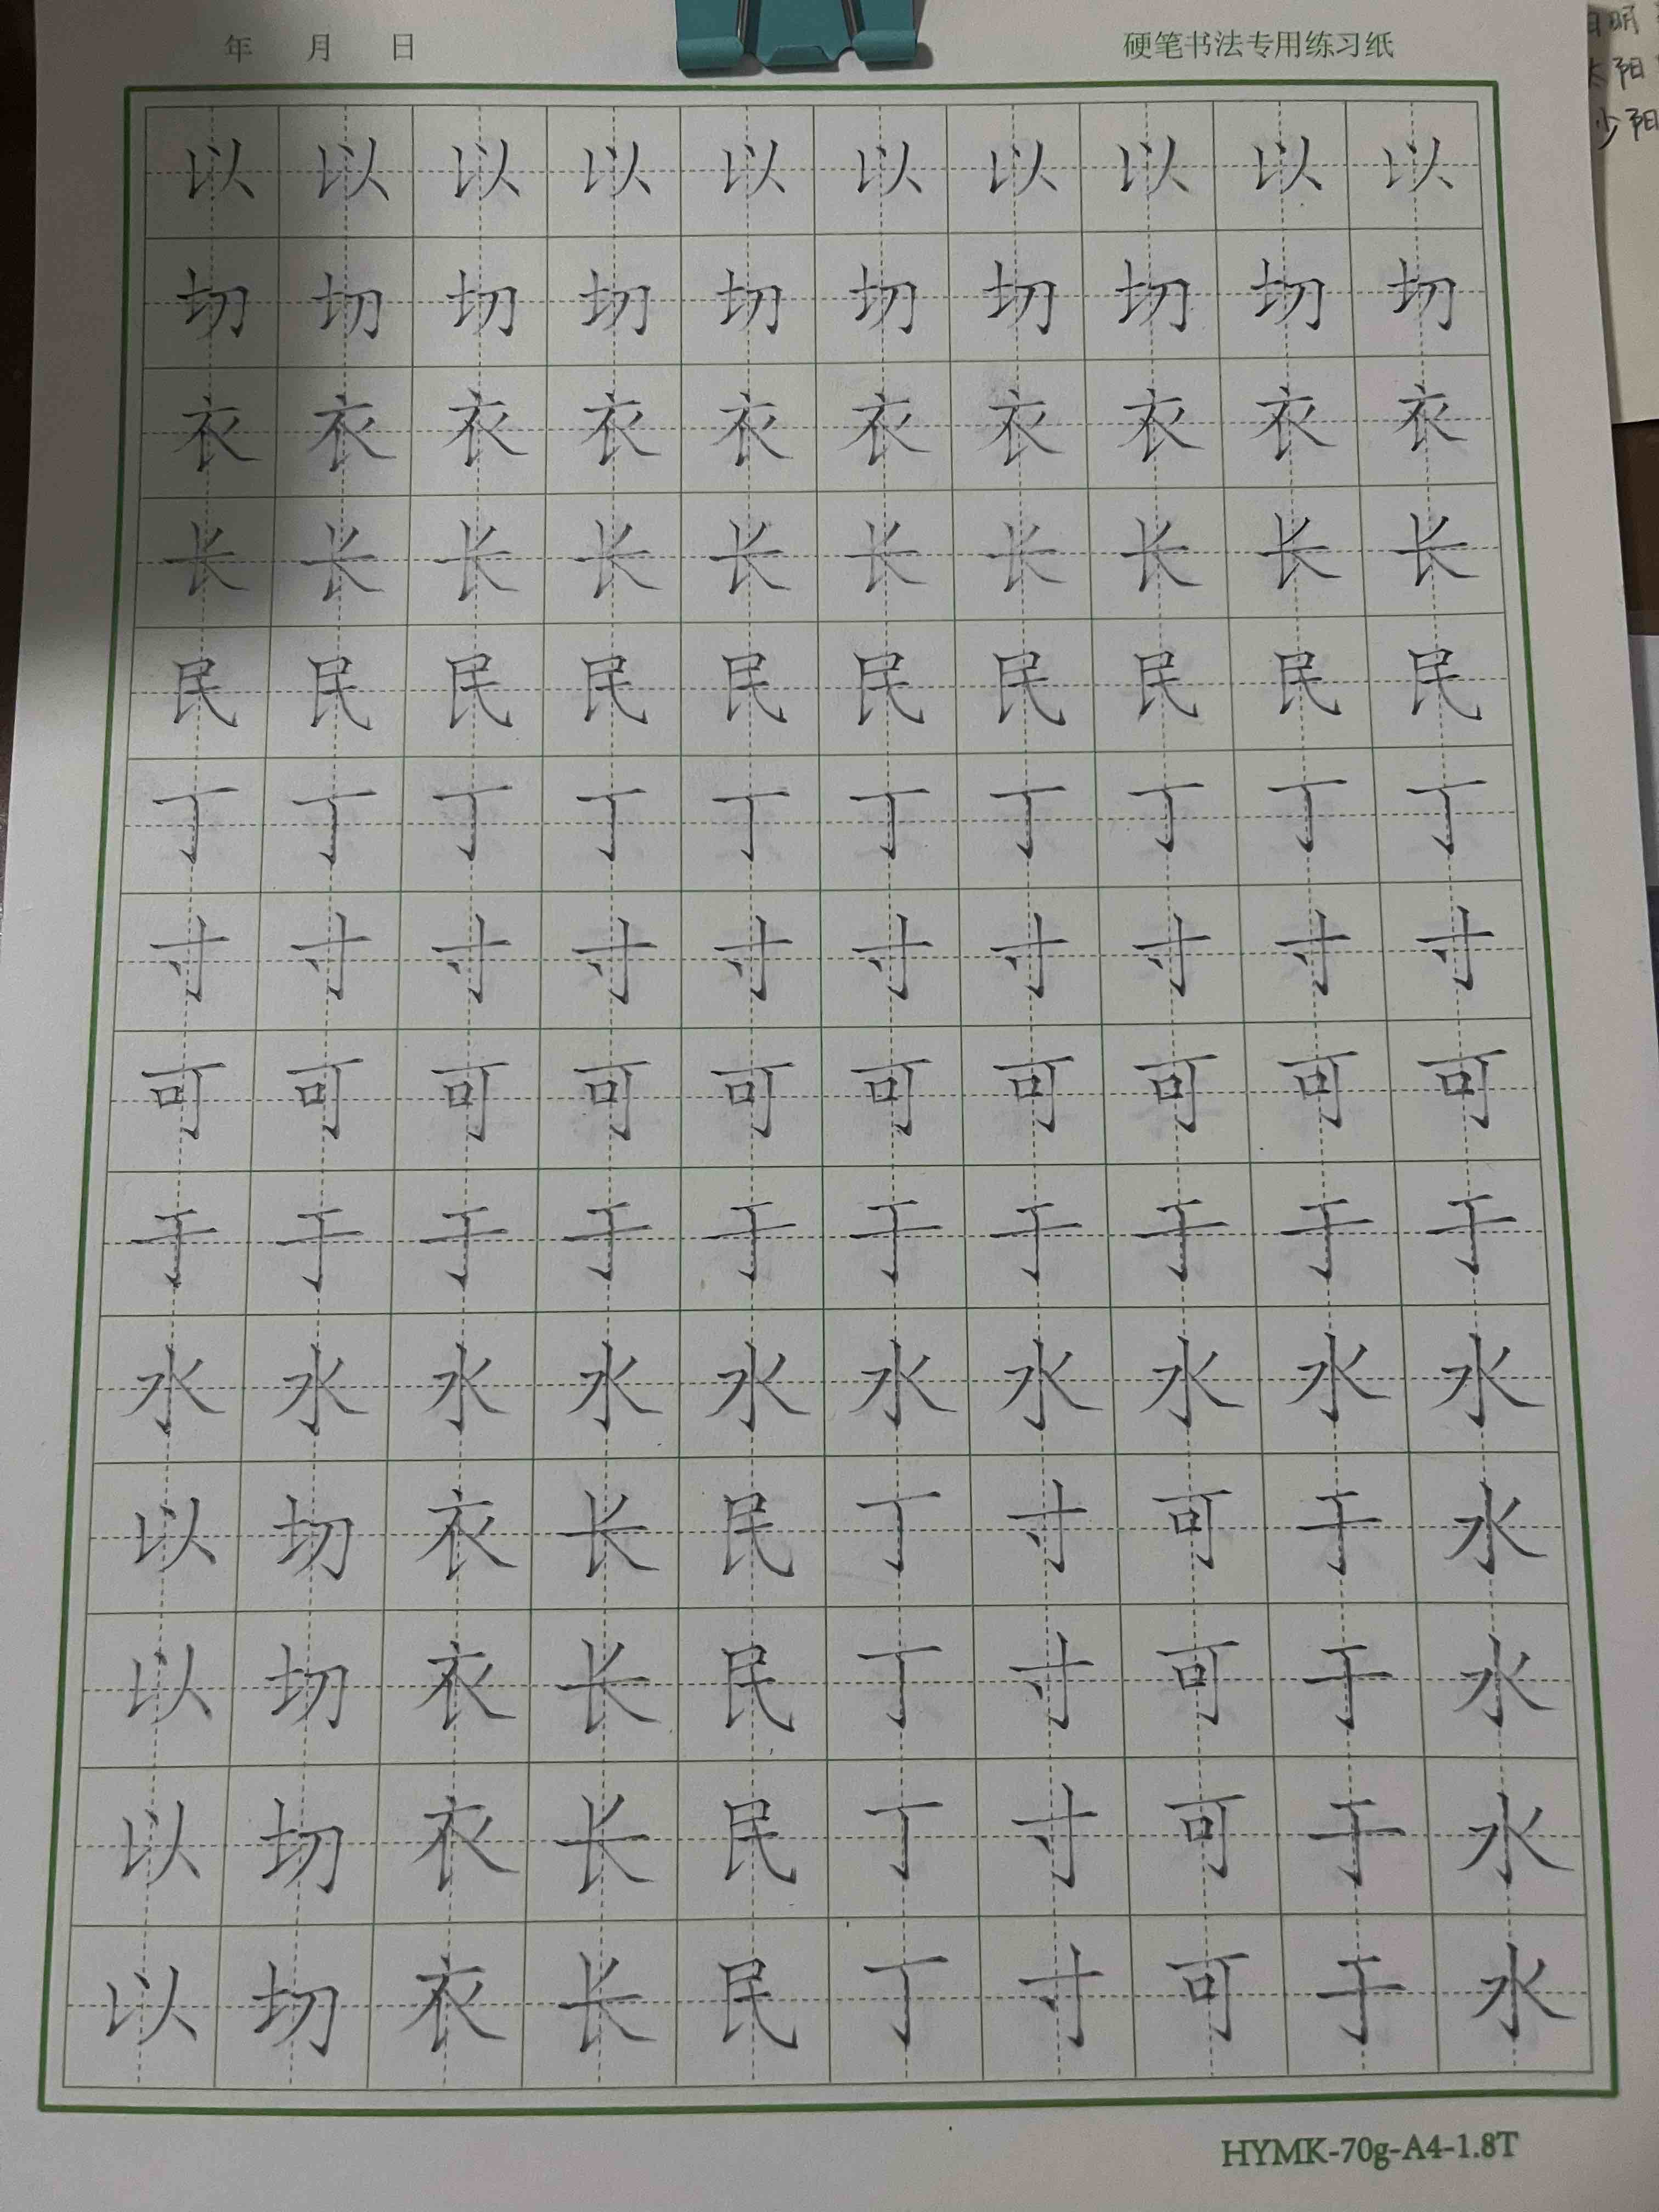 年 月 日 硬笔书法专用练习纸
以 以 以 以 以 以 以 以 以 以
切 切 切 切 切 切 切 切 切 切
衣 衣 衣 衣 衣 衣 衣 衣 衣 衣
长 长 长 长 长 长 长 长 长 长
民 民 民 民 民 民 民 民 民 民
丁 丁 丁 丁 丁 丁 丁 丁 丁 丁
寸 寸 寸 寸 寸 寸 寸 寸 寸 寸
可 可 可 可 可 可 可 可 可 可
于 于 于 于 于 于 于 于 于 于
水 水 水 水 水 水 水 水 水 水
以 切 衣 长 民 丁 寸 可 于 水
以 切 衣 长 民 丁 寸 可 于 水
以 切 衣 长 民 丁 寸 可 于 水
以 切 衣 长 民 丁 寸 可 于 水
HYMK-70g-A4-1.8T
明
太阳
少阳